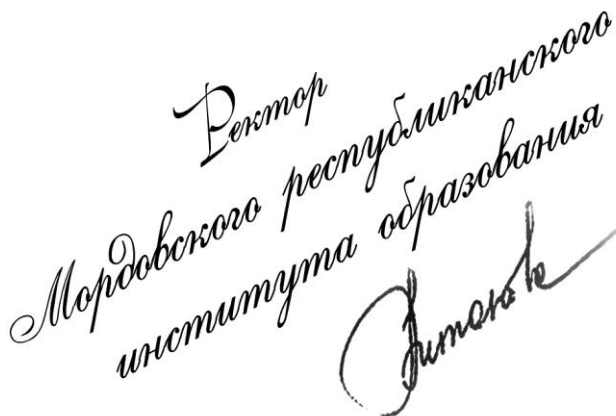 Ректор
Мордовского республиканского
института образования